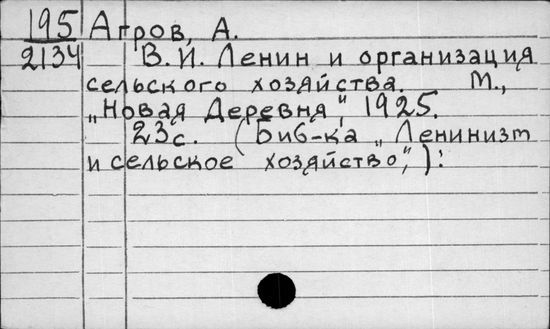 195 Агров, А.
2134 В. И. Ленин и организация
сельского хозяйства. М.,
„Новая Деревня", 1925.
23с. (Биб-ка „Ленинизм
и сельское хозяйство",):